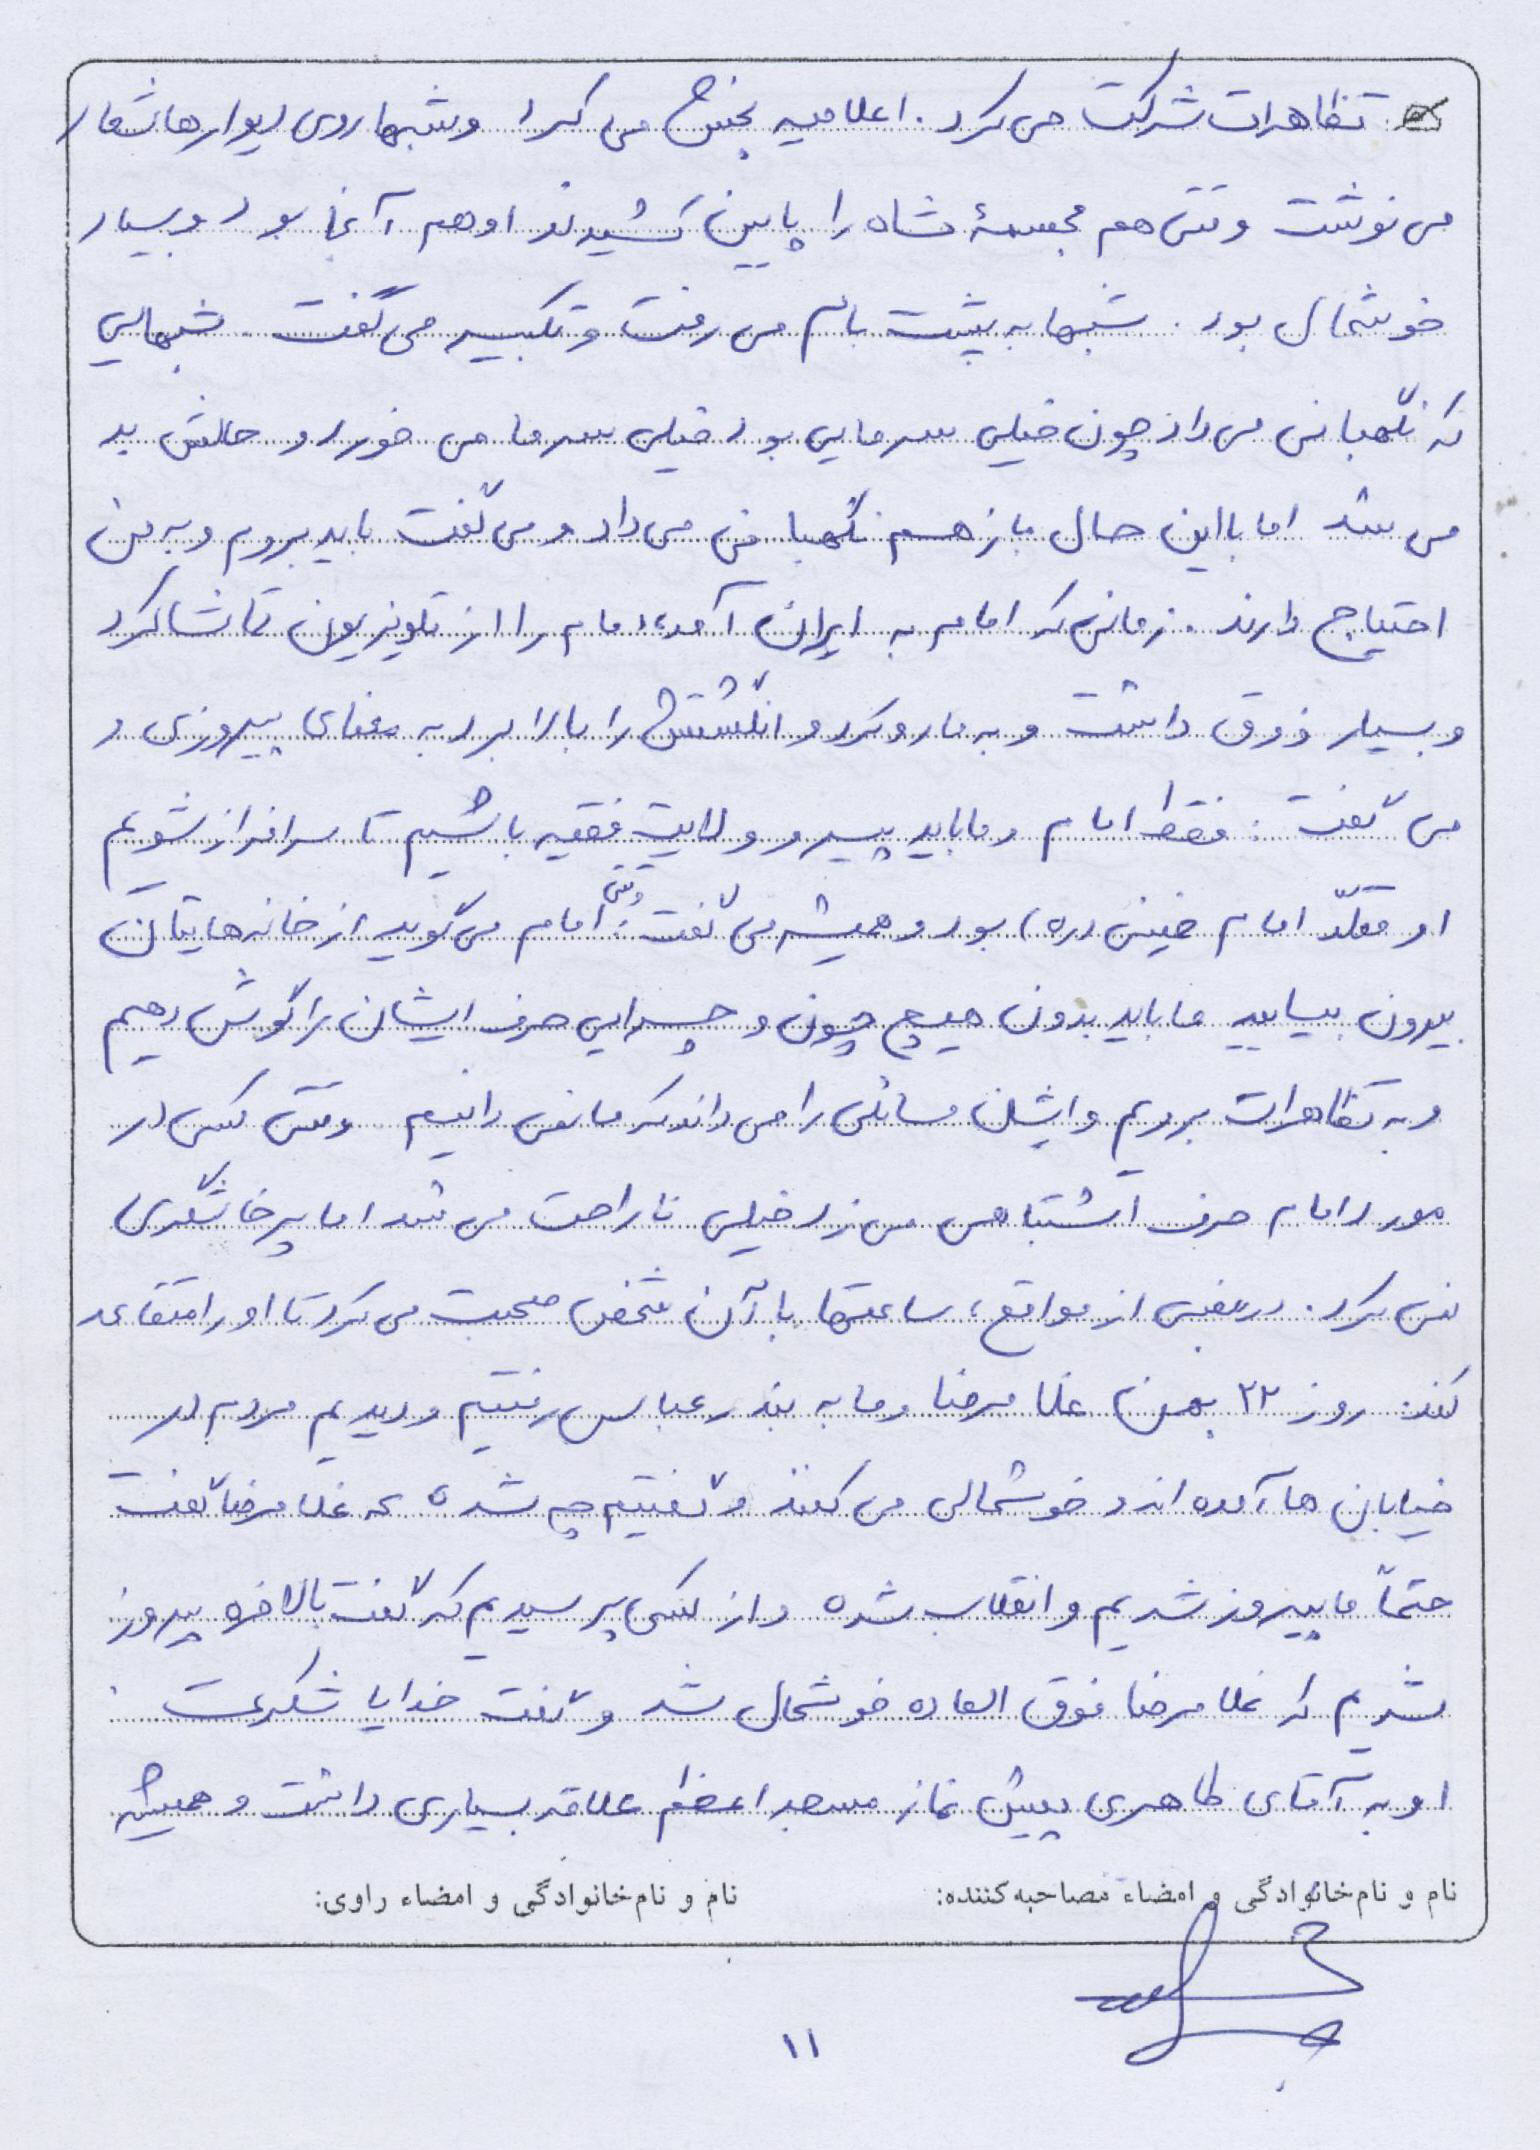 تظاهرات شرکت می کرد. اعلامیه پخش می کرد و شبها روی دیوارها شعار
می نوشت وقتی هم مجسمهٔ شاه را پایین کشیدند او هم آنجا بود و بسیار
خوشحال بود. شبها به پشت بام می رفت و تکبیر می گفت. شبهایی
که نگهبانی می داد چون خیلی سرمایی بود خیلی سرما می خورد و حالش بد
می شد اما با این حال باز هم نگهبانی می داد و می گفت باید بروم و به من
احتیاج دارند. زمانی که امام به ایران آمد، امام را از تلویزیون تماشا کرد
و بسیار ذوق داشت و به ما رو کرد و انگشتش را بالا برد به معنای پیروزی و
می گفت: فقط امام و ما باید پیرو ولایت فقیه باشیم تا سرافراز شویم
او مقلّد امام خمینی (ره) بود و همیشه می گفت: وقتی امام می گوید از خانه هایتان
بیرون بیایید ما باید بدون هیچ چون و چرایی حرف ایشان را گوش دهیم
و به تظاهرات برویم و ایشان مسائلی را می داند که ما نمی دانیم وقتی کسی در
مورد امام حرف اشتباهی می زد خیلی ناراحت می شد اما پرخاشگری
نمی کرد. در بعضی از مواقع، ساعتها با آن شخص صحبت می کرد تا او را متقاعد
کند. روز ۲۲ بهمن غلامرضا و ما به بندرعباس رفتیم و دیدیم مردم در
خیابان ها آمده اند و خوشحالی می کنند و گفتیم چه شده که غلامرضا گفت
حتماً ما پیروز شدیم و انقلاب شده و از کسی پرسیدیم که گفت بالاخره پیروز
شدیم که غلامرضا فوق العاده خوشحال شد و گفت خدایا شکرت.
او به آقای طاهری پیش نماز مسجد اعظم علاقه بسیاری داشت و همیشه
نام و نام‌خانوادگی و امضاء مصاحبه‌کننده: نام و نام‌خانوادگی و امضاء راوی:
۱۱